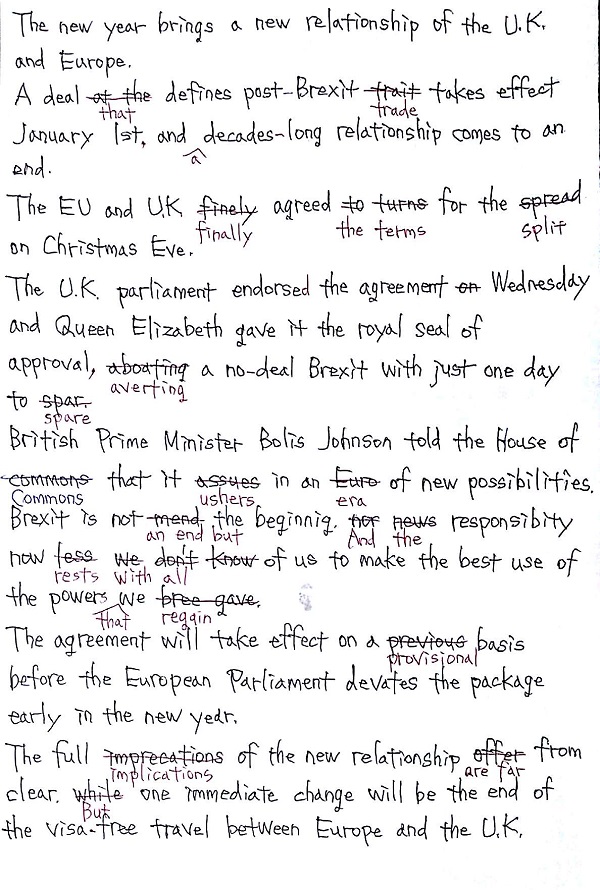 The new year brings a new relationship of the U.K.
and Europe.
A deal at the defines post-Brexit trait takes effect
that trade
January 1st, and decades-long relationship comes to an
a
end.
The EU and U.K. finely agreed to turns for the spread
finally the terms split
on Christmas Eve.
The U.K. parliament endorsed the agreement on Wednesday
and Queen Elizabeth gave it the royal seal of
approval, aboating a no-deal Brexit with just one day
averting
to spar.
spare
British Prime Minister Bolis Johnson told the House of
commons that it assues in an Euro of new possibilities.
Commons ushers era
Brexit is not mend the beginnig. nor news responsibity
an end but And the
now less we don't know of us to make the best use of
rests with all
the powers we bree gave.
that regain
The agreement will take effect on a previous basis
provisional
before the European Parliament devates the package
early in the new year.
The full imprecations of the new relationship offer from
implications are far
clear. while one immediate change will be the end of
But
the visa-free travel between Europe and the U.K.